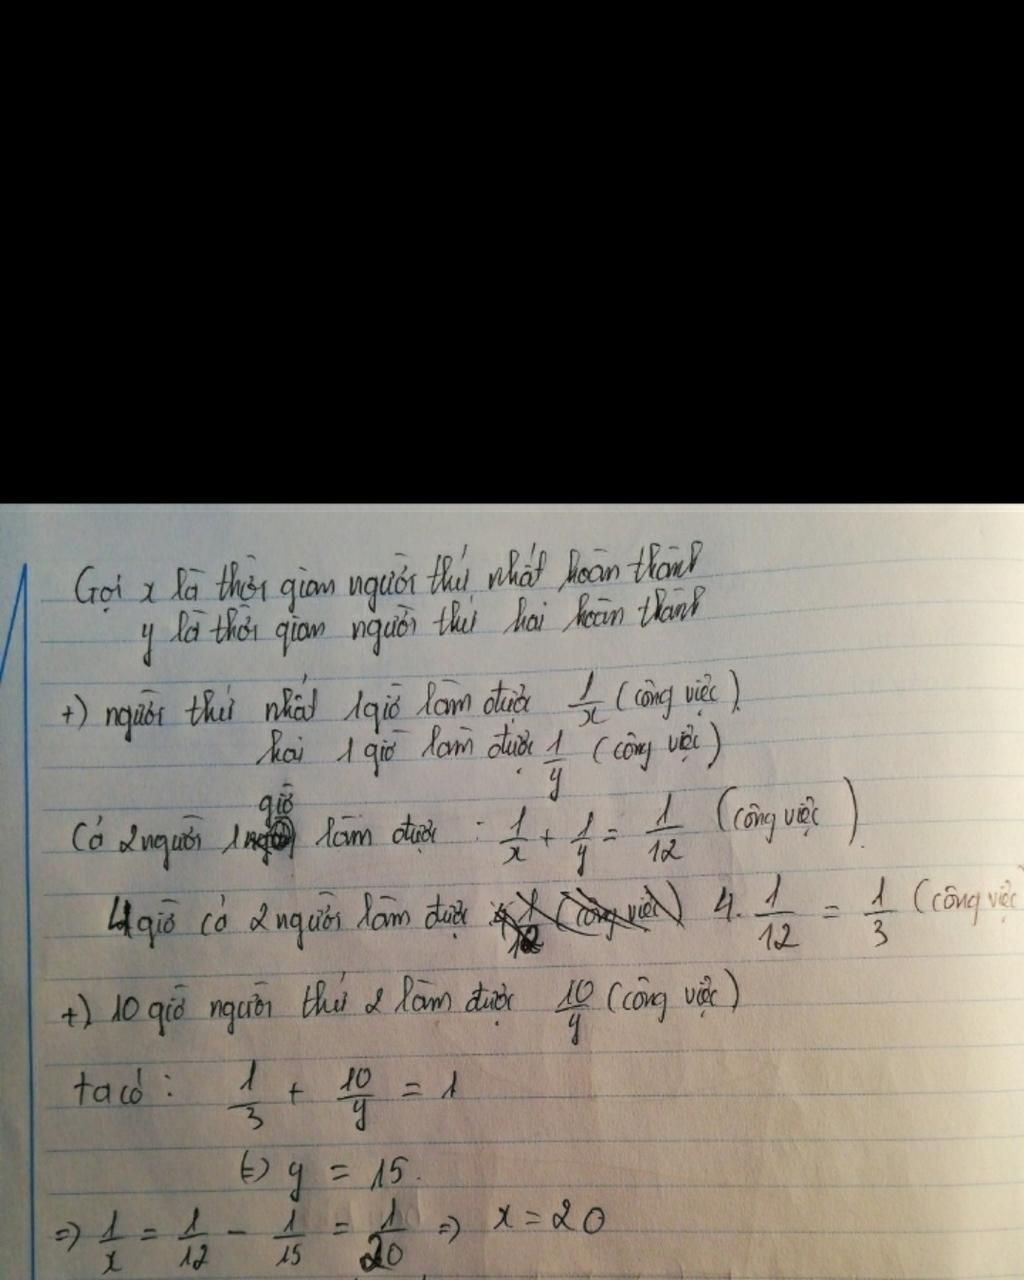 Gọi x là thời gian người thứ nhất hoàn thành
y là thời gian người thứ hai hoàn thành
+) người thứ nhất 1 giờ làm được 1/x (công việc)
hai 1 giờ làm được 1/y (công việc)
giờ
Cả 2 người 1 làm được : 1/x + 1/y = 1/12 (công việc)
4 giờ cả 2 người làm được 4. 1/12 = 1/3 (công việc
+) 10 giờ người thứ 2 làm được 10/y (công việc)
ta có : 1/3 + 10/y = 1
(=) y = 15.
=) 1/x = 1/12 - 1/15 = 1/20 =) x = 20